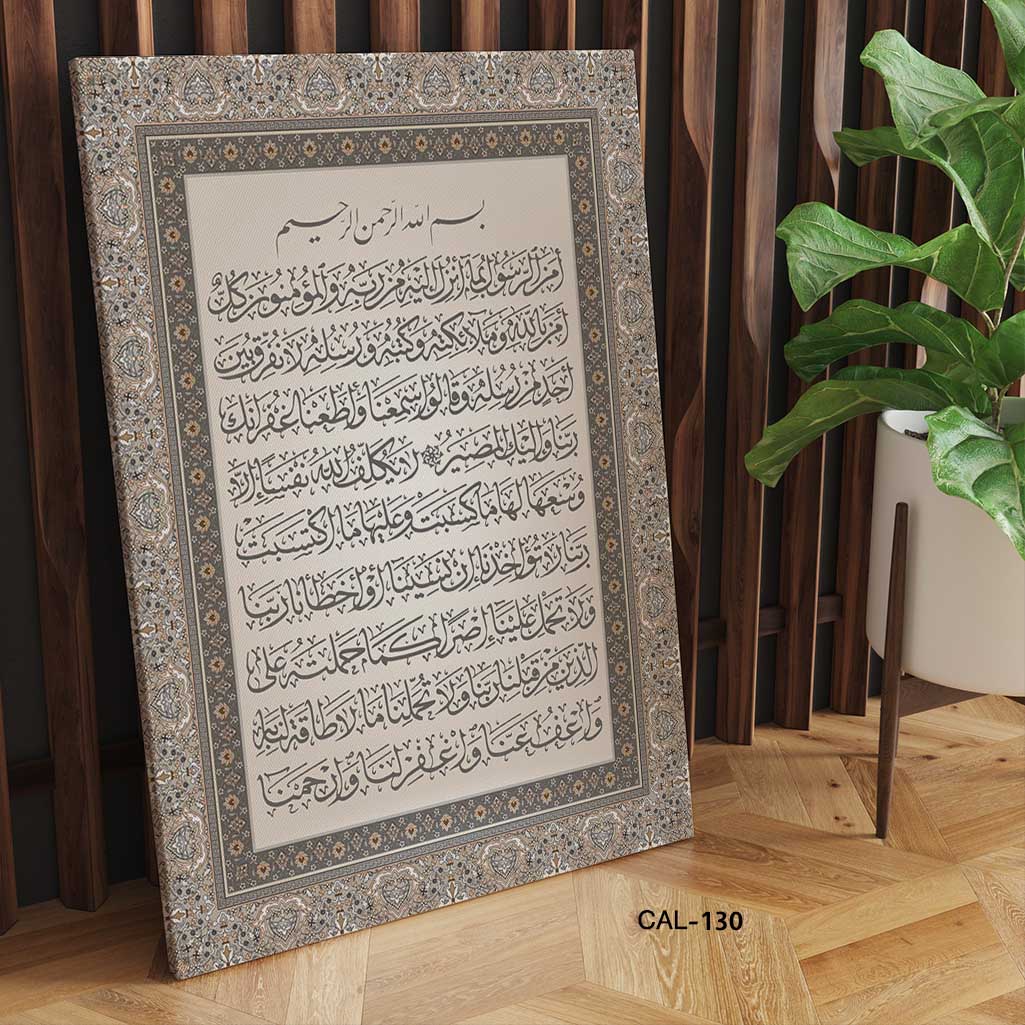 بسم الله الرحمن الرحيم
آمن الرسول بما أنزل إليه من ربه والمؤمنون كل
آمن بالله وملائكته وكتبه ورسله لا نفرق بين
أحد من رسله وقالوا سمعنا وأطعنا غفرانك
ربنا وإليك المصير لا يكلف الله نفسا إلا
وسعها لها ما كسبت وعليها ما اكتسبت
ربنا لا تؤاخذنا إن نسينا أو أخطأنا ربنا
ولا تحمل علينا إصرا كما حملته على
الذين من قبلنا ربنا ولا تحملنا ما لا طاقة لنا به
واعف عنا واغفر لنا وارحمنا
CAL-130